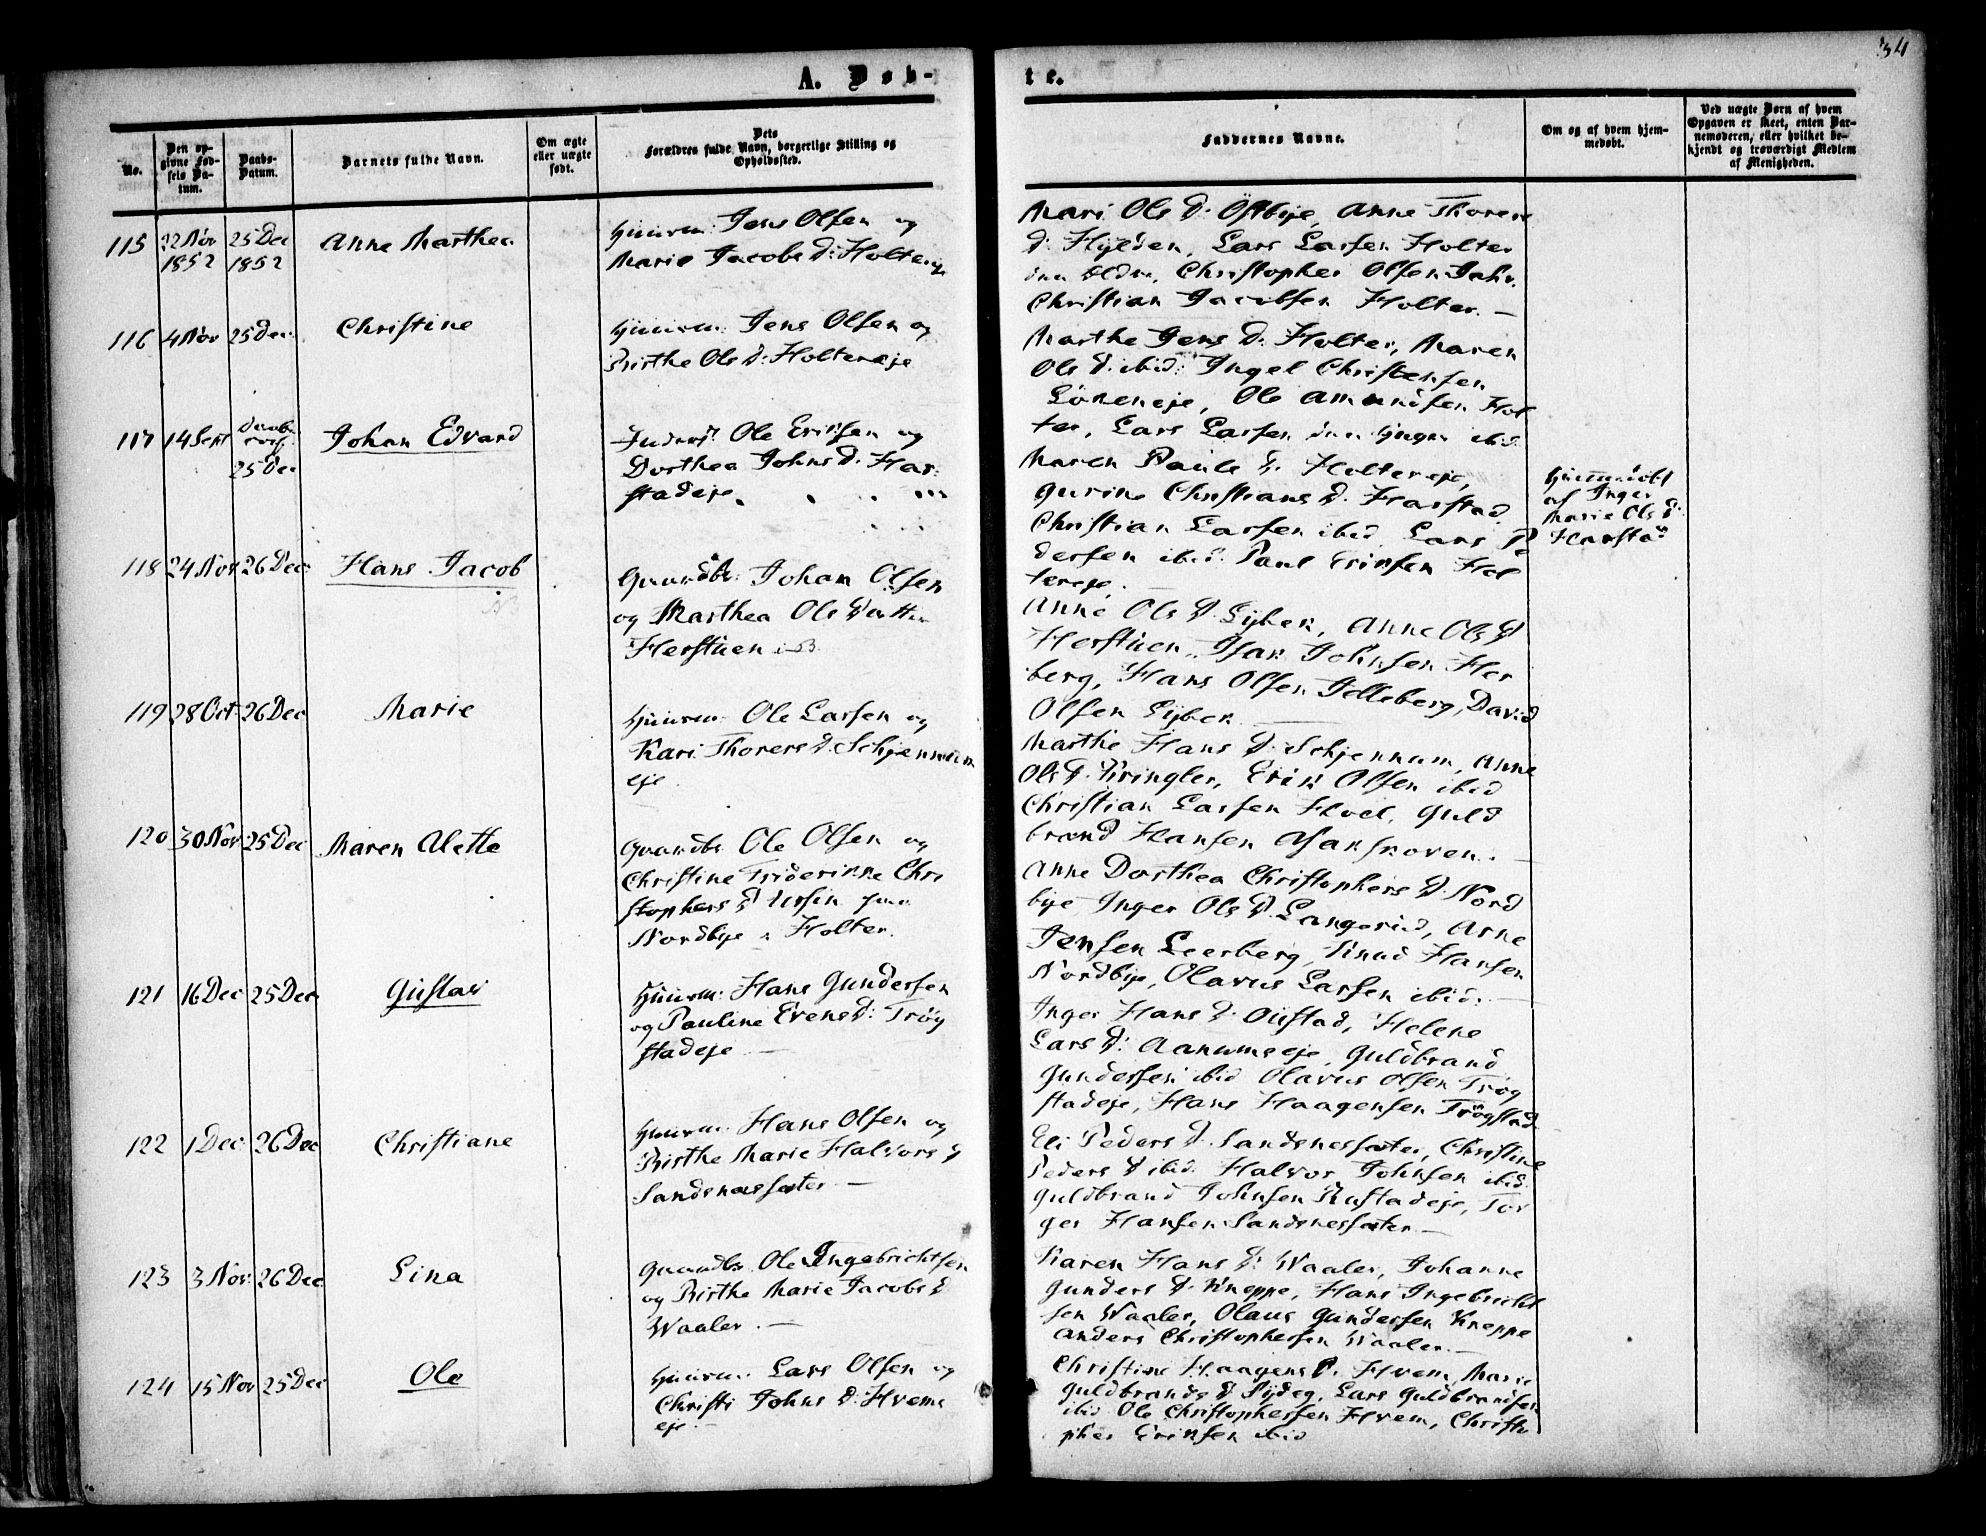 34
A. Døb-
te.
No.
Den opgivne Fødsels Datum.
Daabs-Datum.
Barnets fulde Navn.
Om ægte eller uægte født.
Dets Forældres fulde Navn, borgerlige Stilling og Opholdssted.
Faddernes Navne.
Om og af hvem hjemmedøbt.
Ved uægte Børn af hvem Opgaven er skeet, enten Barnemoderen, eller hvilket bekjendt og troværdigt Medlem af Menigheden.
115 22 Nov 1852 25 Dec 1852 Anne Marthea
Huusm: Jens Olsen og
Marie Jacobs D: Holtereje
Mari Ols D: Østbye, Anne Thorers
D: Hylden, Lars Larsen Holter
den Eldre, Christopher Olsen
Christian Jacobsen Holter. —
116 4 Nov 25 Dec Christine
Huusm: Jens Olsen og
Birthe Ols D: Holtereje
Marthe Jens D: Holter, Maren
Ols D. ibid: Ingel Christensen
Löreneje, Ole Amundsen Hol
ter, Lars Larsen den Yngre ibid.
117 14 Sept 25 Dec Johan Edvard
Inderst Ole Eriksen og
Dorthea Johns D: Har
stadeje
Maren Pauls D. Holtereje,
Gurine Christians D. Harstad
Christian Larsen ibid, Lars Pe
dersen ibid. Paul Eriksen Hol
tereje. —
Hjemmedøbt
af Inger
Marie Ols D
Harstad
118 24 Nov 26 Dec Hans Jacob
Gaardbr: Johan Olsen
og Marthea Ols Datter
Herstuen
Anne Ols D Gyber, Anne Ols D
Herstuen, Isak Johnsen Her
berg, Hans Olsen Jelleberg, David
Olsen Gyber —
119 28 Oct 26 Dec Marie
Huusm: Ole Larsen og
Kari Thorers D: Schjennum
eje
Marthe Hans D. Schjennum, Anne
Ols D. Kringler, Erik Olsen ibid
Christian Larsen Hoel, Guld
brand Hansen Asakskoven. —
120 30 Nov 25 Dec Maren Alette
Gaardbr Ole Olsen og
Christine Friderikke Chri
stophers D
Nordbye Holter.
Anne Dorthea Christophers D. Nord
bye Inger Ols D. Langerud, Arne
Jensen Leerberg, Knud Hansen
Nordbye, Olavus Larsen ibid. —
121 16 Dec 25 Dec Gustav
Huusm: Hans Gundersen
og Pauline Evens D: Trøg
stadeje —
Inger Hans D. Oustad, Helene
Lars D: Aanumseje, Guldbrand
Gundersen ibid Olavus Olsen Trøg
stadeje, Hans Haagensen Trøgstad
122 1 Dec 26 Dec Christiane
Huusm: Hans Olsen og
Birthe Marie Halvors D
Sandsnessæter —
Eli Peders D. Sandsnessæter, Christine
Peders D ibid. Halvor Johnsen ibid
Guldbrand Johnsen Rustadeje, Tor
ger Hansen Sandsnessæter —
123 3 Nov: 26 Dec Lina
Gaardbr Ole Ingebrichtsen
og Birthe Marie Jacobs D
Waaler. —
Karen Hans D: Waaler, Johanne
Gunders D. Kneppe, Hans Ingebricht
sen Waaler, Olaus Gundersen Kneppe
Anders Christophersen Waaler —
124 15 Nov 25 Dec Ole
Huusm: Lars Olsen og
Christi Johns D: Hvems
eje —
Christine Haagens D. Hvem, Marie
Guldbrands D Lars Guldbrandsen
ibid Ole Christophersen Hvem, Christo
pher Eriksen ibid